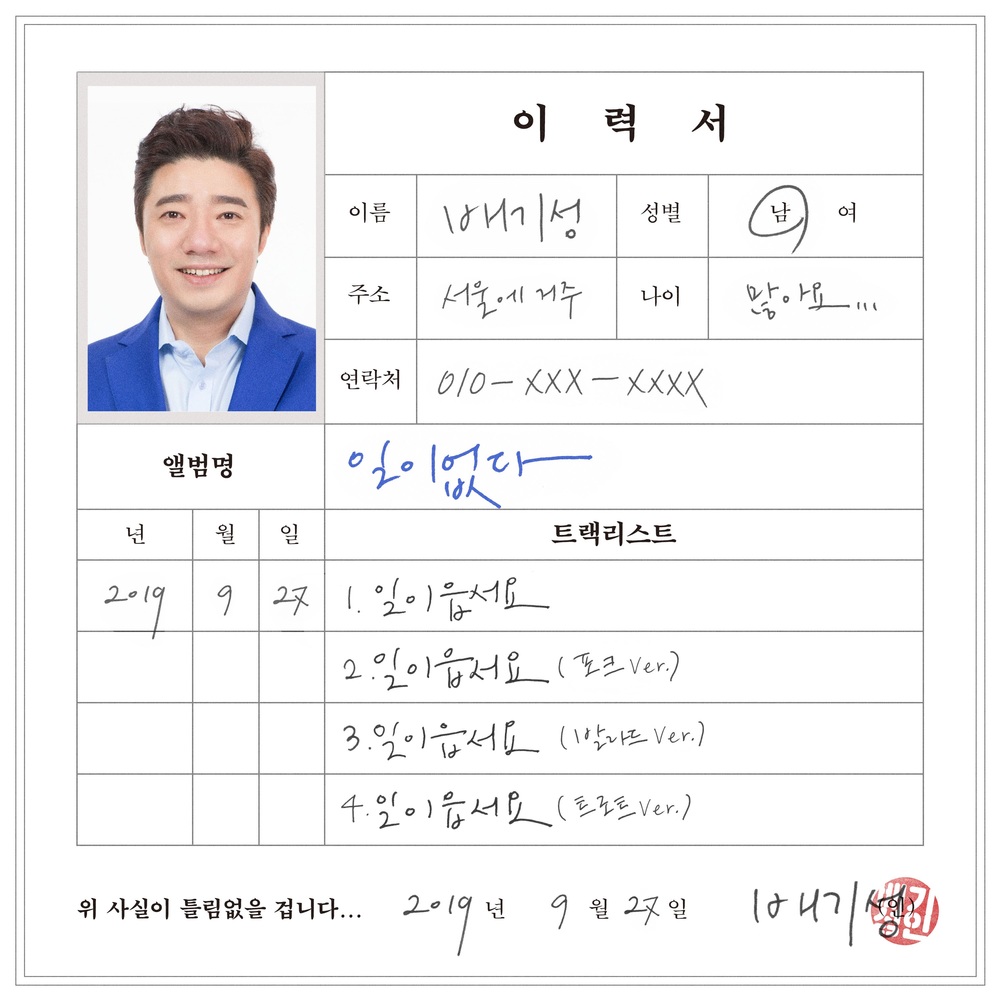 이 력 서
이름 배기성 성별 남 여
주소 서울에 거주 나이 많아요...
연락처 010-XXX-XXXX
앨범명 일이없다
년 월 일 트랙리스트
2019 9 27 1. 일이읍써요
2. 일이읍써요 (포크 Ver.)
3. 일이읍써요 (발라드 Ver.)
4. 일이읍써요 (트로트 Ver.)
위 사실이 틀림없을 겁니다... 2019 년 9 월 27 일 배기성 (인)